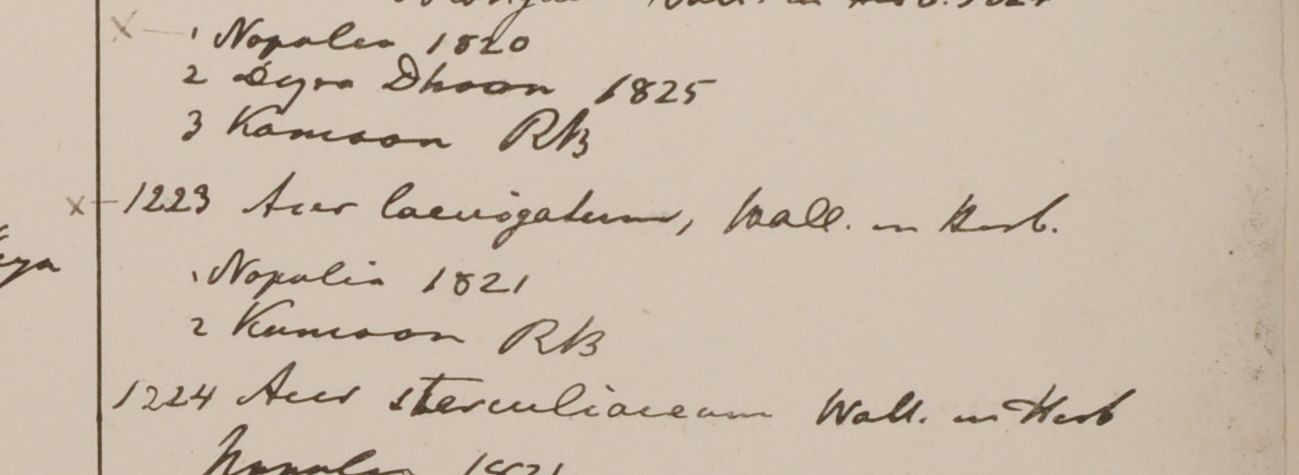 Wall. in Herb. 1824
x 1 Napalia 1820
2 Deyra Dhoon 1825
3 Kamaon RB
x 1223 Acer laevigatum, Wall. in Herb.
1 Napalia 1821
2 Kamaon RB
1224 Acer sterculiaceum Wall. in Herb
Napalia 1821